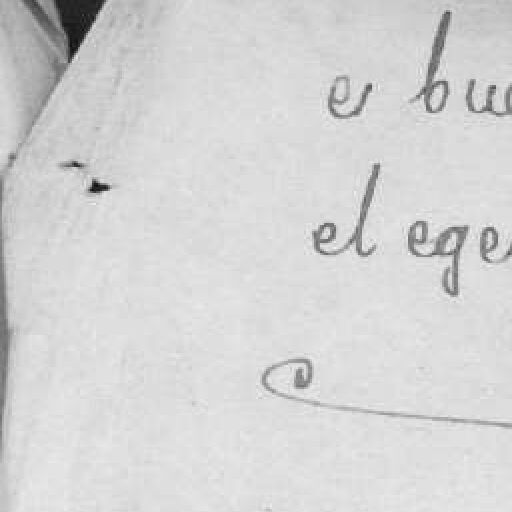 es bue
el eger